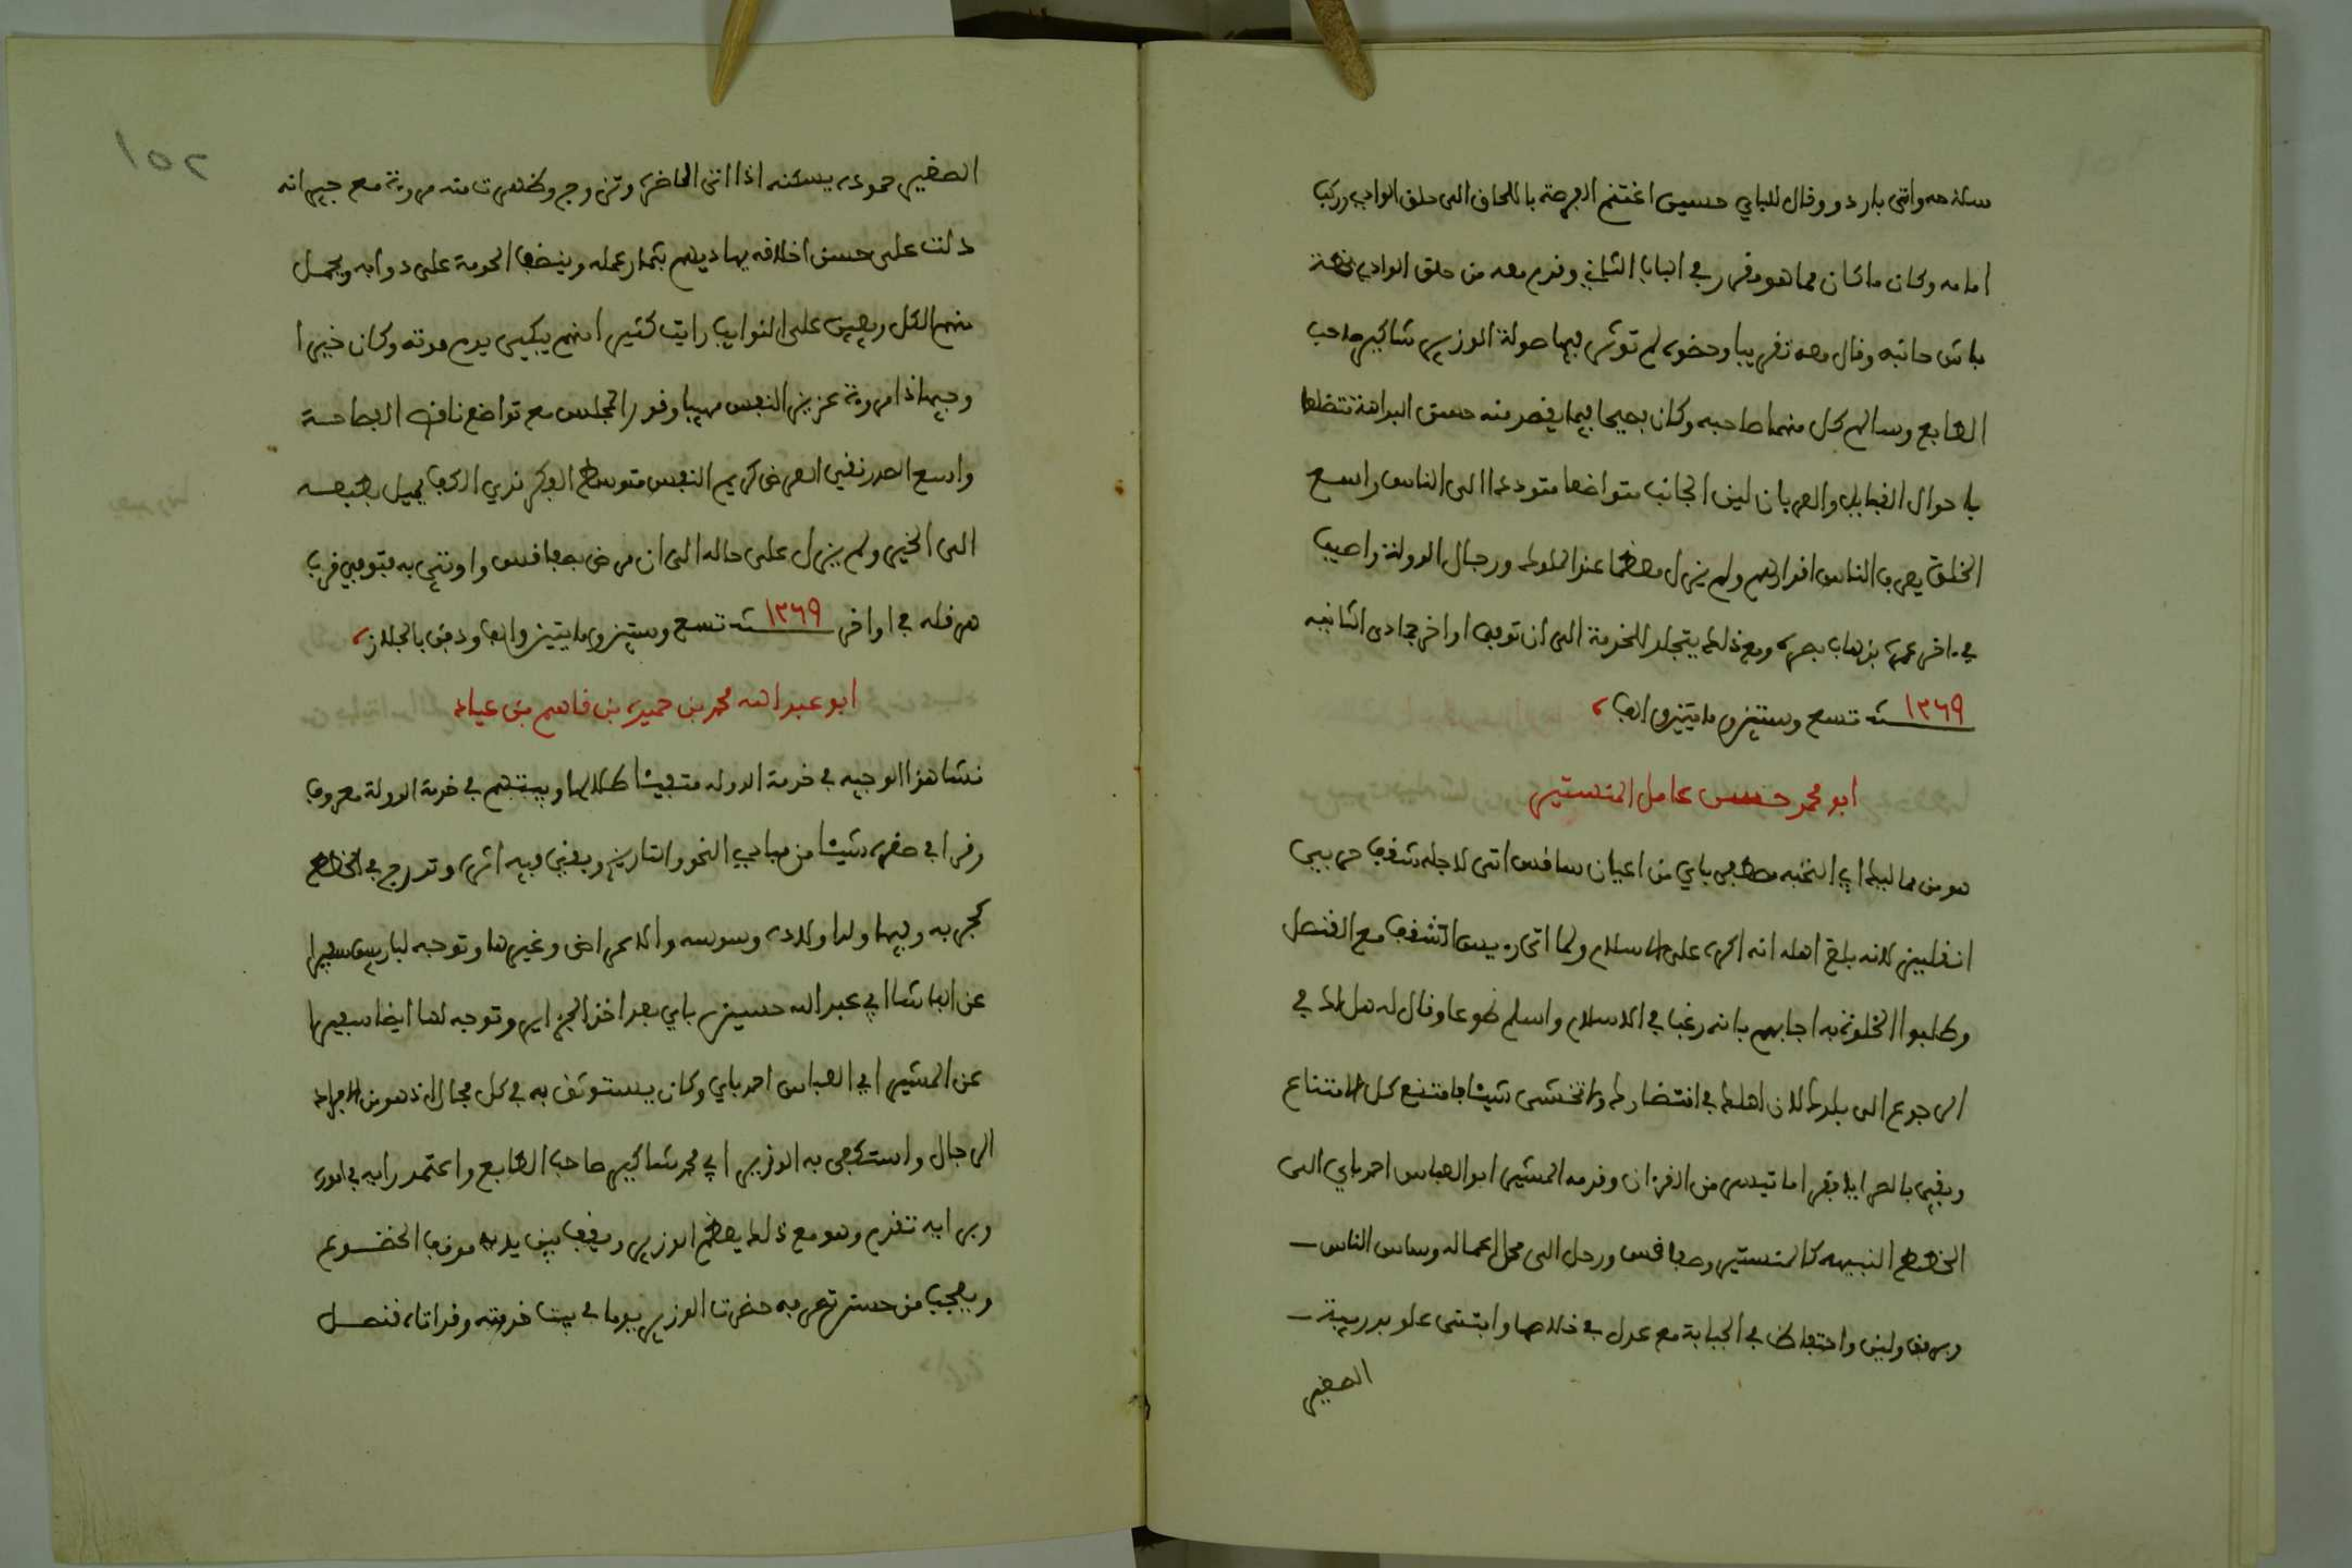 سلاحه واتى باردو وقال للباي حسين اغتنم الفرصة باللحاق الى حلق الوادي وركب
امامه وكان ما كان مما هو مقرر في الباب الثاني وقدم معه من حلق الوادي
باش حانبه وقال معه تقريبا وحضوه لم توثر فيها صولة الوزير شاكير صاحب
الطابع وسالم كل منهما صاحبه وكان فصيحا فيما يقصر منه حسن البداهة متضلعا
باحوال القبايل والعربان لين الجانب متواضعا متوددا الى الناس واسع
الخلق يعرف الناس اقدارهم ولم يزل معظما عند الملوك ورجال الدولة واصيب
في ءاخر عمره بذهاب بصره ومع ذلك يتجلد للخدمة الى ان توفي اواخر جمادى الثانيه
١٢٦٩ سنة تسع وستين ومايتين والف
ابو محمد حسن عامل المنستير
هو من مماليك ابي النخبه مصطفى باي من اعيان ساقس اتى لاجله شقف حربي
انقليز لانه بلغ اهله انه اكره على الاسلام ولما اتى رييس الشقف مع القنصل
وطلبوا الخلوة به اجابهم بانه رغب في الاسلام واسلم طوعا وقال له هل لك في
الرجوع الى بلدك لان اهلك في انتضارك ولا تخشى شيئا فامتنع كل الامتناع
وبقي بالصرايا فقرا ما تيسر من القرءان وقدمه المشير ابو العباس احمد باي الى
الخطط النبيهه كالمنستير وصفاقس ورحل الى محل اعماله وساس الناس
برفق ولين واحتياط في الجباية مع عدل في خلاصها وابتنى علو بدريبة
الصغير
١٥٢
الصغير حموده يسكنه اذا اتى الحاضرة وتزوج وظهرت منه مروءة مع جيرانه
دلت على حسن اخلاقه يهاديهم بثمار عمله وينضف الحومة على دوابه ويحمل
منهم الكل ويعين على النوايب رايت كثيرا منهم يبكي يوم موته وكان خيرا
وجيها ذا مروءة عزيز النفس مهيبا وقور المجلس مع تواضع نافذ الفصاحة
واسع الصدر نقي العرض كريم النفس متوسط الفكر ندي الكف يميل بطبعه
الى الخير ولم يزل على حاله الى ان مرض بصفاقس واوتي به فتوفي قرب
هرقله في اواخر ١٢٦٩ سنة تسع وستين ومايتين والف ودفن بالجلاز
ابو عبد الله محمد بن حميده بن قاسم بن عياد
نشا هذا الوجيه في خدمة الدوله متفيئا ظلالها وبيتهم في خدمة الدولة معروف
وقرا في صغره شيئا من مبادي النحو والتاريخ وبقي فيه اثره وتدرج في الخطط
كجربه وفيها ولد اولاده وسوسه والاعراض وغيرها وتوجه لباريس سفيرا
عن الباشا ابي عبد الله حسين باي بعد اخذ الجزاير وتوجه لها ايضا سفيرا
عن المشير ابي العباس احمد باي وكان يستوثق به في كل مجال اذ هو من افراد
الرجال واستكفى به الوزير ابي محمد شاكير صاحب الطابع واعتمد رايه في اموره
وبرايه تقدم وهو مع ذلك يعظم الوزير ويقف بين يديه موقف الخضوع
ويعجب من حسن تصرفه حضرت الوزير يوما في بيت خدمته وقد اتاه قنصل